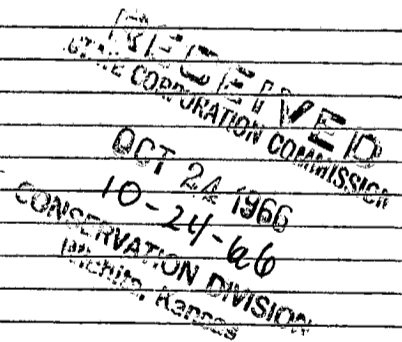 RECEIVED
STATE CORPORATION COMMISSION
OCT 24 1966
10-24-66
CONSERVATION DIVISION
Wichita, Kansas